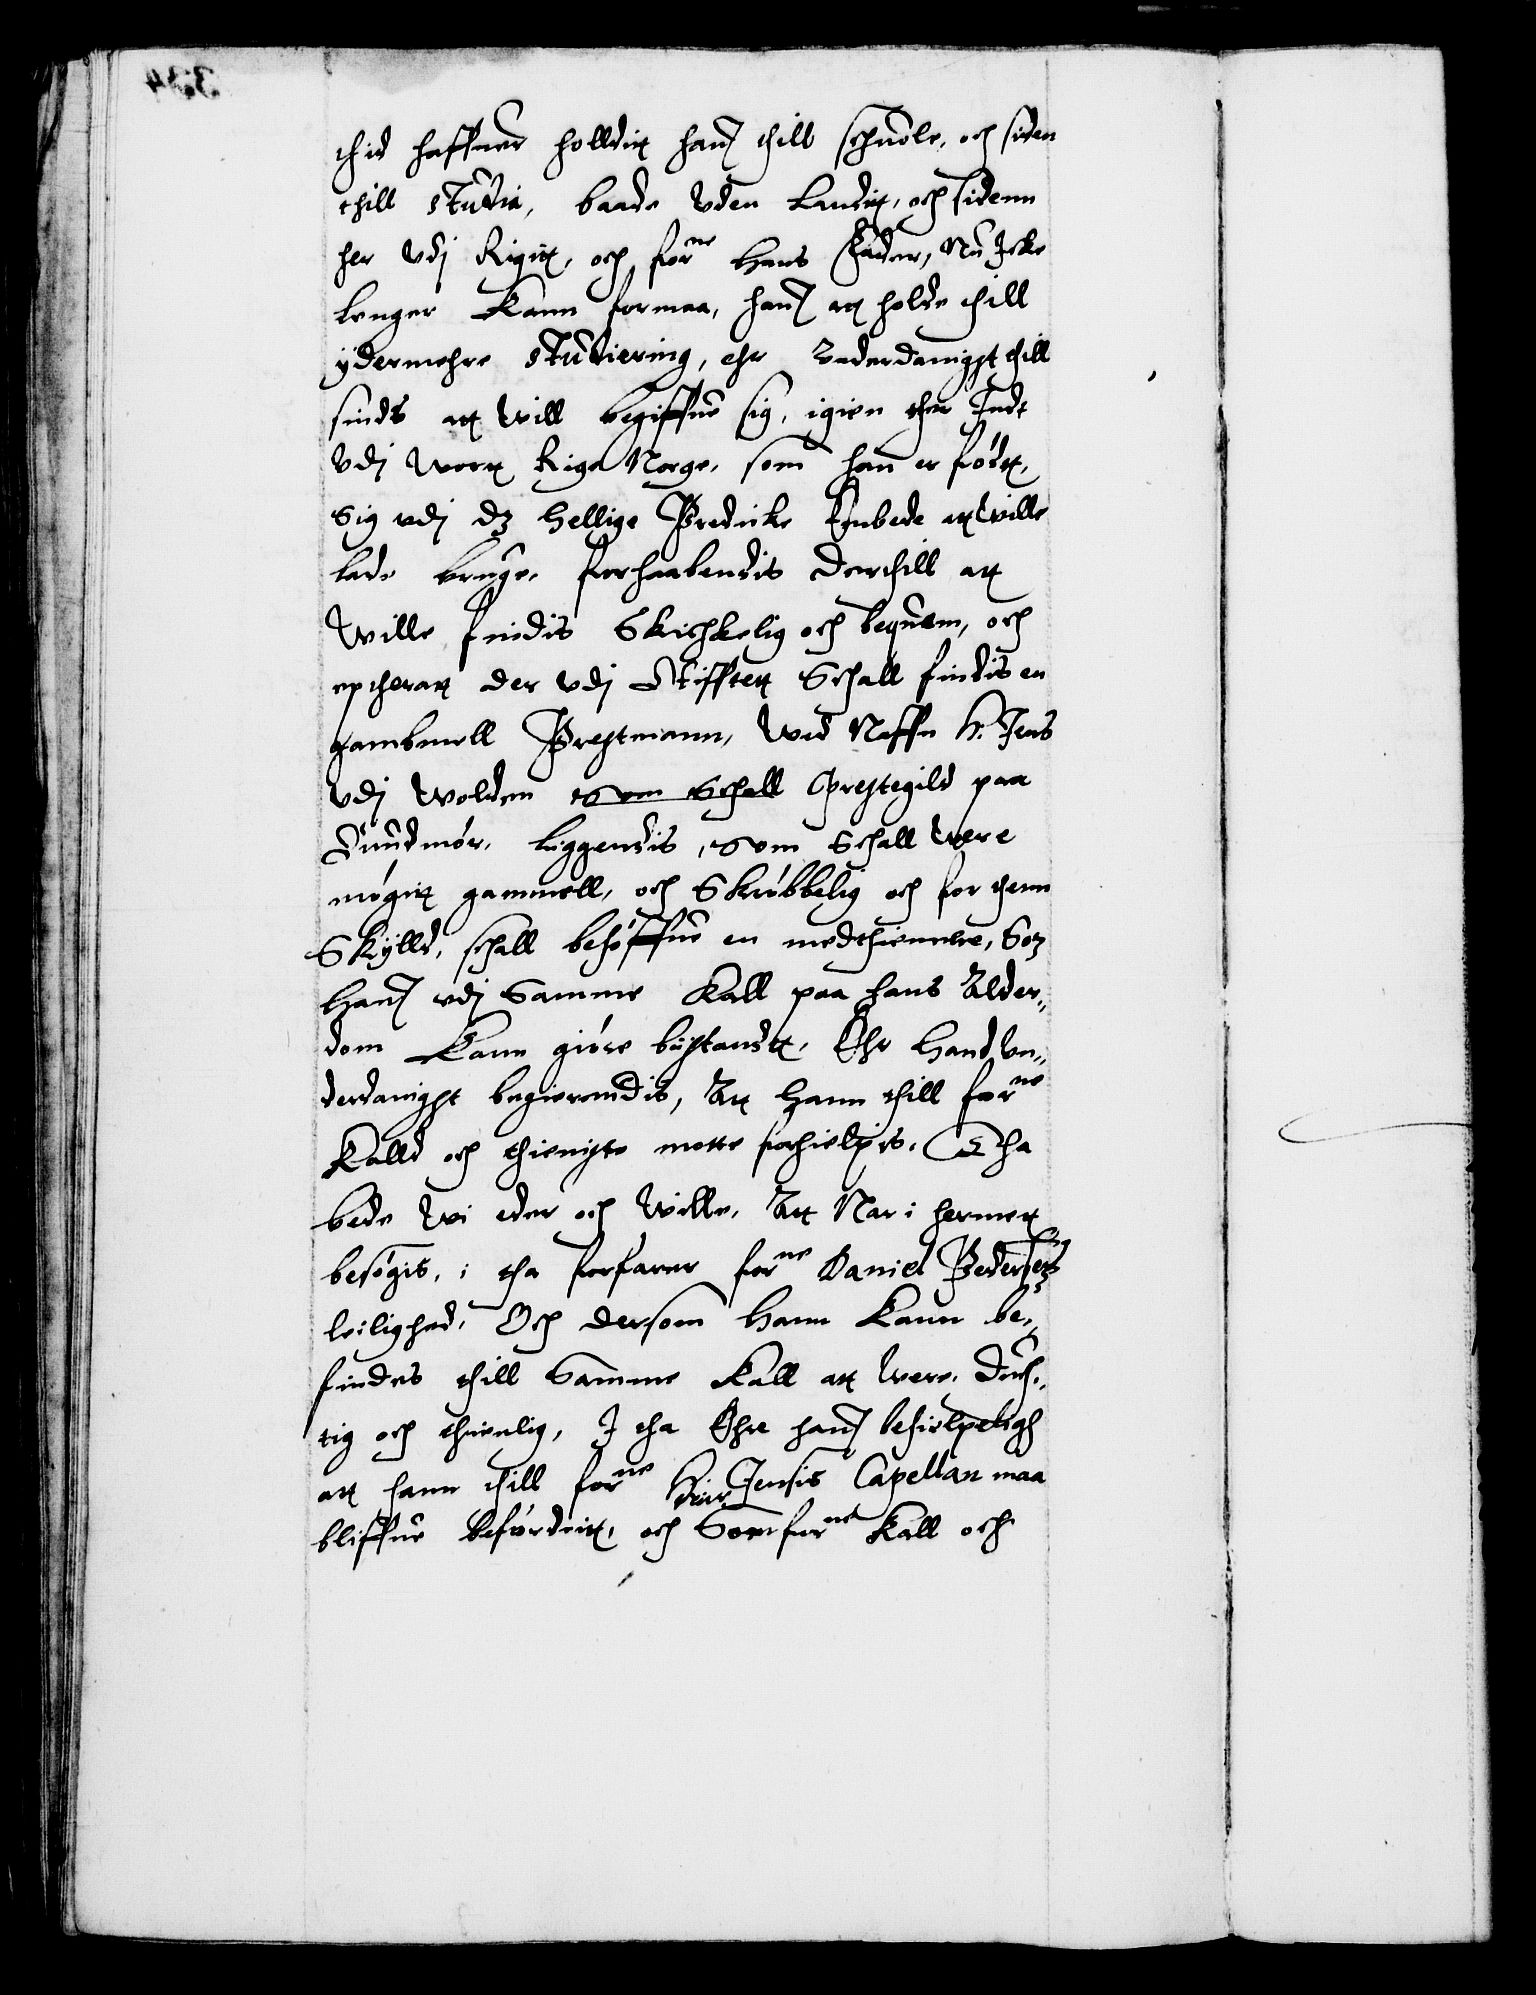 thid haffuer holldit hanʒ thill schuole, och siden
thill studia, baade vden Landit, och sidenn
her vdj Rigit, och forne Hans Fader, Nu Icke
lenger kann formaa, hanʒ att holde thill
ydermehre studiering, ehr vnderdanigst thill
sinds att will begiffue sig, igien ther Indt
vdj wort Rige Norge, som han er født,
Sig vdj dʒ hellige Predicke Embede att wille
lade bruge, forhaabendis derthill att
wille findis Skickelig och bequem, och
epther att der vdj Stifftet Schall findis en
gambmell Prestmann, wed Naffn H. Jens
vdj Wolden som Schall Prestegild paa
Sundmør, liggendis, som Schall were
møgit gammell, och Skrøbbelig och for thenn
Skylld, schall behøffue en medthiennere, Som
Hanʒ vdj Samme Kall paa hans Alder,,
dom kann giøre biistandt, Ehr Hand vn,,
derdanigst begierendis, att hann thill forne
Kalld och thieniste motte forhielpis. Tha
bede wi eder och wille, att Nar i hermet
besøgis, i tha forfarer forne Daniel Pedersens
leilighed, Och dersom Hann kann be,,
findes thill Samme Kall att were, duch,,
tig och thienlig, I tha Ehre hanʒ behielpeligh
att hann thill forne Her Jensis Capellan maa
bliffue befordrit, och Som forne Kall och